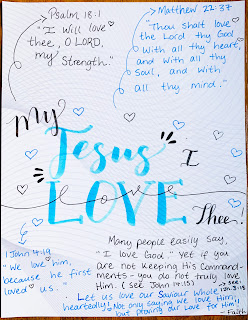 Psalm 18:1
"I Will love
thee, O LORD,
my strength."
Matthew 22:37
"Thou shalt love
the Lord thy God
with all thy heart,
and with all thy
soul, and with
all thy mind."
My
"Jesus"
I
LOVE
Thee!
1 John 4:19
"We love him,
because he first
loved us."
Many people easily say,
"I love God". Yet if you
are not keeping His Command-
ments - you do not truly love
Him. (see John 14:15)
Let us love our Saviour whole-
heartedly! Not only saying we love Him,
but proving our love for Him!